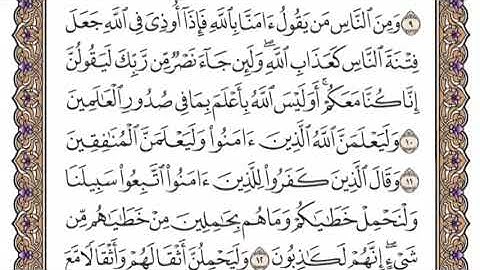 ٩ وَمِنَ ٱلنَّاسِ مَن يَقُولُ ءَامَنَّا بِٱللَّهِ فَإِذَآ أُوذِىَ فِى ٱللَّهِ جَعَلَ
فِتْنَةَ ٱلنَّاسِ كَعَذَابِ ٱللَّهِۖ وَلَئِن جَآءَ نَصْرٌ مِّن رَّبِّكَ لَيَقُولُنَّ
إِنَّا كُنَّا مَعَكُمْۚ أَوَلَيْسَ ٱللَّهُ بِأَعْلَمَ بِمَا فِى صُدُورِ ٱلْعَٰلَمِينَ
١٠ وَلَيَعْلَمَنَّ ٱللَّهُ ٱلَّذِينَ ءَامَنُوا۟ وَلَيَعْلَمَنَّ ٱلْمُنَٰفِقِينَ
١١ وَقَالَ ٱلَّذِينَ كَفَرُوا۟ لِلَّذِينَ ءَامَنُوا۟ ٱتَّبِعُوا۟ سَبِيلَنَا
وَلْنَحْمِلْ خَطَٰيَٰكُمْ وَمَا هُم بِحَٰمِلِينَ مِنْ خَطَٰيَٰهُم مِّن
شَىْءٍۖ إِنَّهُمْ لَكَٰذِبُونَ ١٢ وَلَيَحْمِلُنَّ أَثْقَالَهُمْ وَأَثْقَالًا مَّعَ